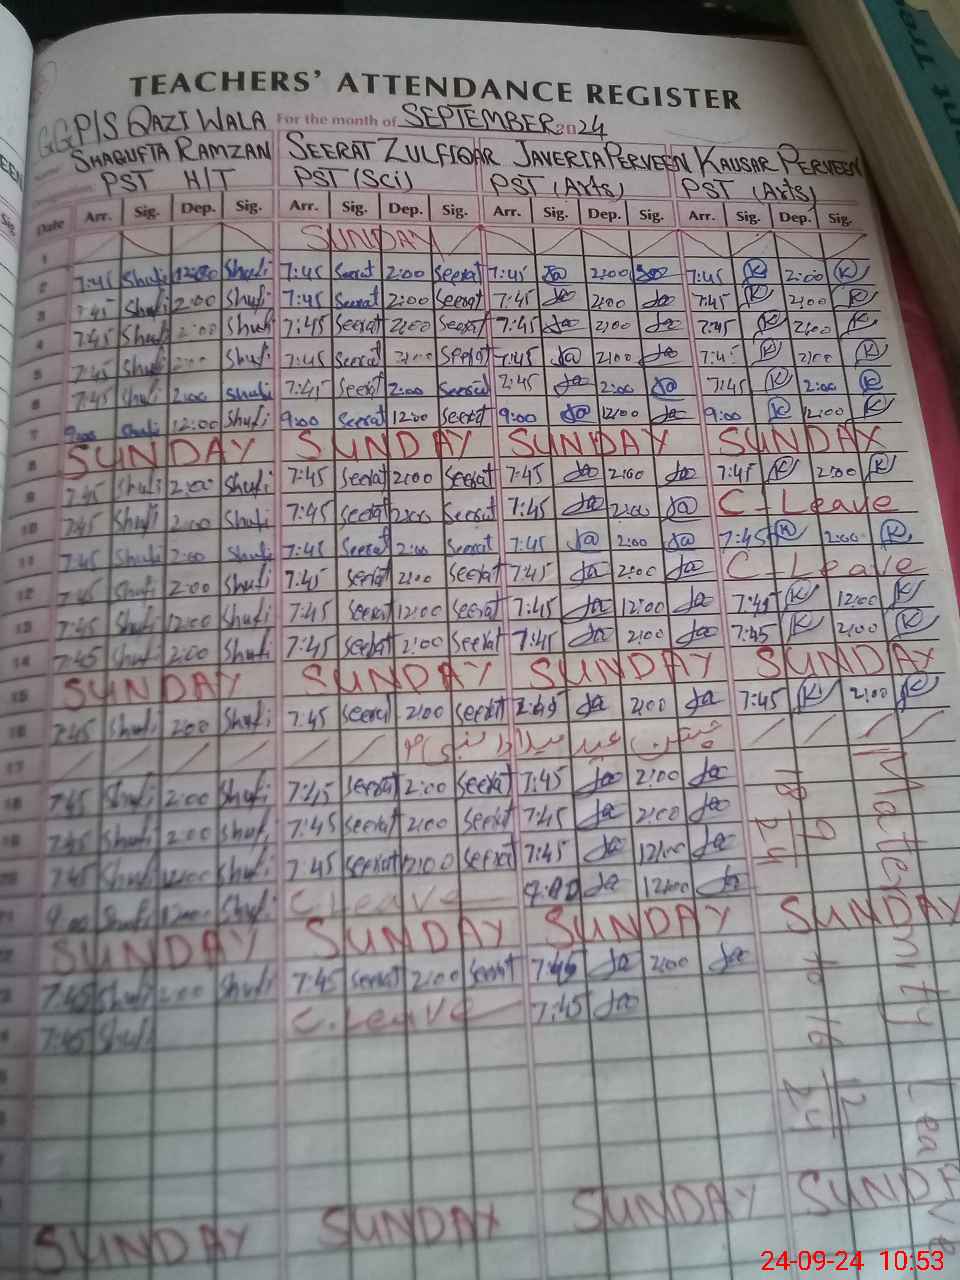 TEACHERS' ATTENDANCE REGISTER
GGP/S QAZI WALA For the month of SEPTEMBER 2024
SHAGUFTA RAMZAN SEERAT ZULFIQAR JAVERIA PERVEEN KAUSAR PERVEEN
PST H/T PST (Sci) PST (Arts) PST (Arts)
Date Arr. Sig. Dep. Sig. Arr. Sig. Dep. Sig. Arr. Sig. Dep. Sig. Arr. Sig. Dep. Sig.
1 SUNDAY
2 7:45 Shufi 12:00 Shufi 7:45 Seerat 2:00 Seerat 7:45 Ja 2:00 7:45 K 2:00 K
3 7:45 Shufi 2:00 Shufi 7:45 Seerat 2:00 Seerat 7:45 Ja 2:00 Ja 7:45 K 2:00 K
4 7:45 Shufi 2:00 Shufi 7:45 Seerat 2:00 Seerat 7:45 Ja 2:00 Ja 7:45 K 2:00 K
5 7:45 Shufi 2:00 Shufi 7:45 Seerat 2:00 Seerat 7:45 Ja 2:00 Ja 7:45 K 2:00 K
6 7:45 Shufi 2:00 Shufi 7:45 Seerat 2:00 Seerat 7:45 Ja 2:00 Ja 7:45 K 2:00 K
7 9:00 Shufi 12:00 Shufi 9:00 Seerat 12:00 Seerat 9:00 Ja 12:00 Ja 9:00 K 12:00 K
8 SUNDAY SUNDAY SUNDAY SUNDAY
9 7:45 Shufi 2:00 Shufi 7:45 Seerat 2:00 Seerat 7:45 Ja 2:00 Ja 7:45 K 2:00 K
10 7:45 Shufi 2:00 Shufi 7:45 Seerat 2:00 Seerat 7:45 Ja 2:00 Ja C-Leave
11 7:45 Shufi 2:00 Shufi 7:45 Seerat 2:00 Seerat 7:45 Ja 2:00 Ja 7:45 K 2:00 K
12 7:45 Shufi 2:00 Shufi 7:45 Seerat 2:00 Seerat 7:45 Ja 2:00 Ja C-Leave
13 7:45 Shufi 12:00 Shufi 7:45 Seerat 12:00 Seerat 7:45 Ja 12:00 Ja 7:45 K 12:00 K
14 7:45 Shufi 2:00 Shufi 7:45 Seerat 2:00 Seerat 7:45 Ja 2:00 Ja 7:45 K 2:00 K
15 SUNDAY SUNDAY SUNDAY SUNDAY
16 7:45 Shufi 2:00 Shufi 7:45 Seerat 2:00 Seerat 7:45 Ja 2:00 Ja 7:45 K 2:00 K
17 عید میلاد النبی
18 7:45 Shufi 2:00 Shufi 7:45 Seerat 2:00 Seerat 7:45 Ja 2:00 Ja
19 7:45 Shufi 2:00 Shufi 7:45 Seerat 2:00 Seerat 7:45 Ja 2:00 Ja
20 7:45 Shufi 12:00 Shufi 7:45 Seerat 12:00 Seerat 7:45 Ja 12:00 Ja
21 9:00 Shufi 12:00 Shufi C.Leave 9:00 Ja 12:00 Ja
22 SUNDAY SUNDAY SUNDAY SUNDAY
23 7:45 Shufi 2:00 Shufi 7:45 Seerat 2:00 Seerat 7:45 Ja 2:00 Ja
24 7:45 Shufi C.Leave 7:45 Ja
Maternity Leave
18/9/24 to 16/12/24
SUNDAY SUNDAY SUNDAY SUNDAY
24-09-24 10:53